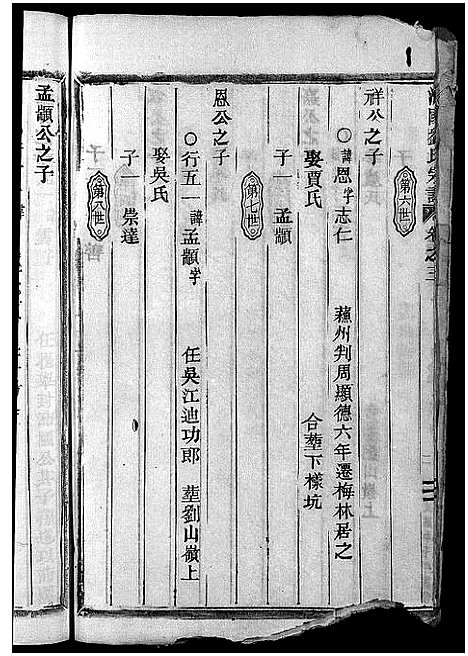 劉氏宗譜 卷之三
第六世
祥公之子
○諱恩字志仁 蘓州判周顯德六年遷梅林居之
娶賈氏 合塟下樣坑
子一 孟顓
第七世
恩公之子
○行五一諱孟顓字 任吳江迪功郎 塟劉山嶺上
娶吳氏
子一 崇達
第八世
孟顓公之子